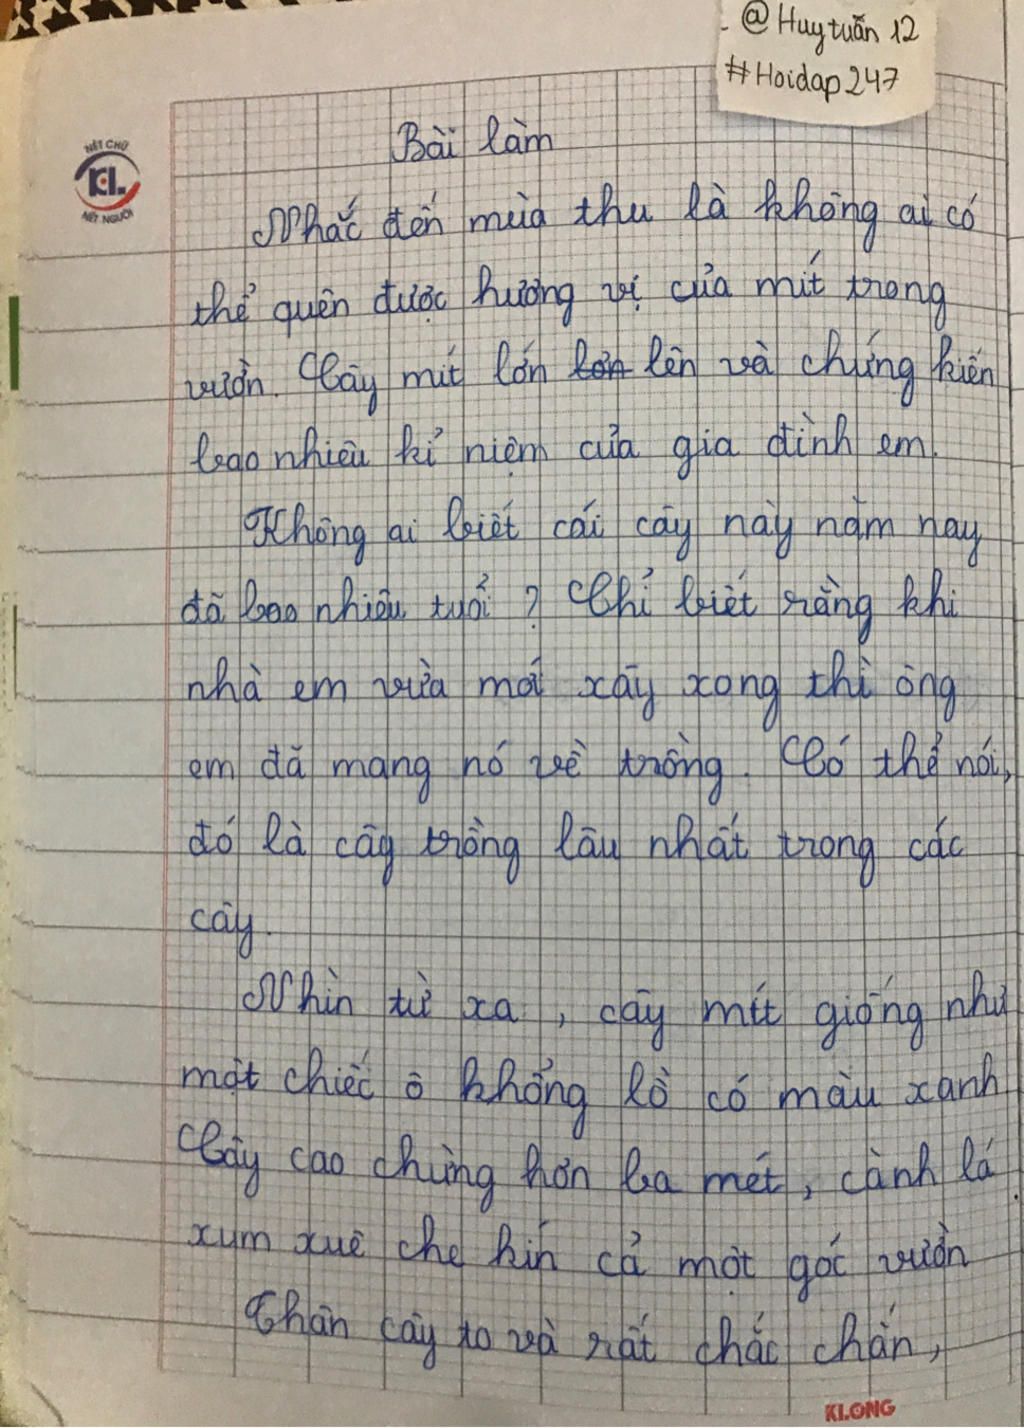 - @Huytuấn 12
#Hoidap247
NÉT CHỮ
KL
NÉT NGƯỜI
Bài làm
Nhắc đến mùa thu là không ai có
thể quên được hương vị của mít trong
vườn. Cây mít lớn lớn lên và chứng kiến
bao nhiêu kỉ niệm của gia đình em.
Không ai biết cái cây này năm nay
đã bao nhiêu tuổi ? Chỉ biết rằng khi
nhà em vừa mới xây xong thì ông
em đã mang nó về trồng. Có thể nói,
đó là cây trồng lâu nhất trong các
cây.
Nhìn từ xa, cây mít giống như
một chiếc ô khổng lồ có màu xanh
Cây cao chừng hơn ba mét, cành lá
xum xuê che kín cả một góc vườn
Thân cây to và rất chắc chắn,
KLONG